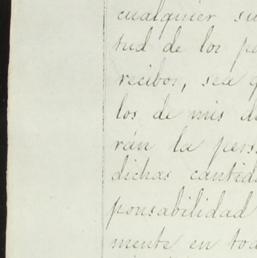 cualquier su
tud de los pe
recibos, sea q
los de mis d
rán la pers
dichas cantid
ponsabilidad
mente en tod